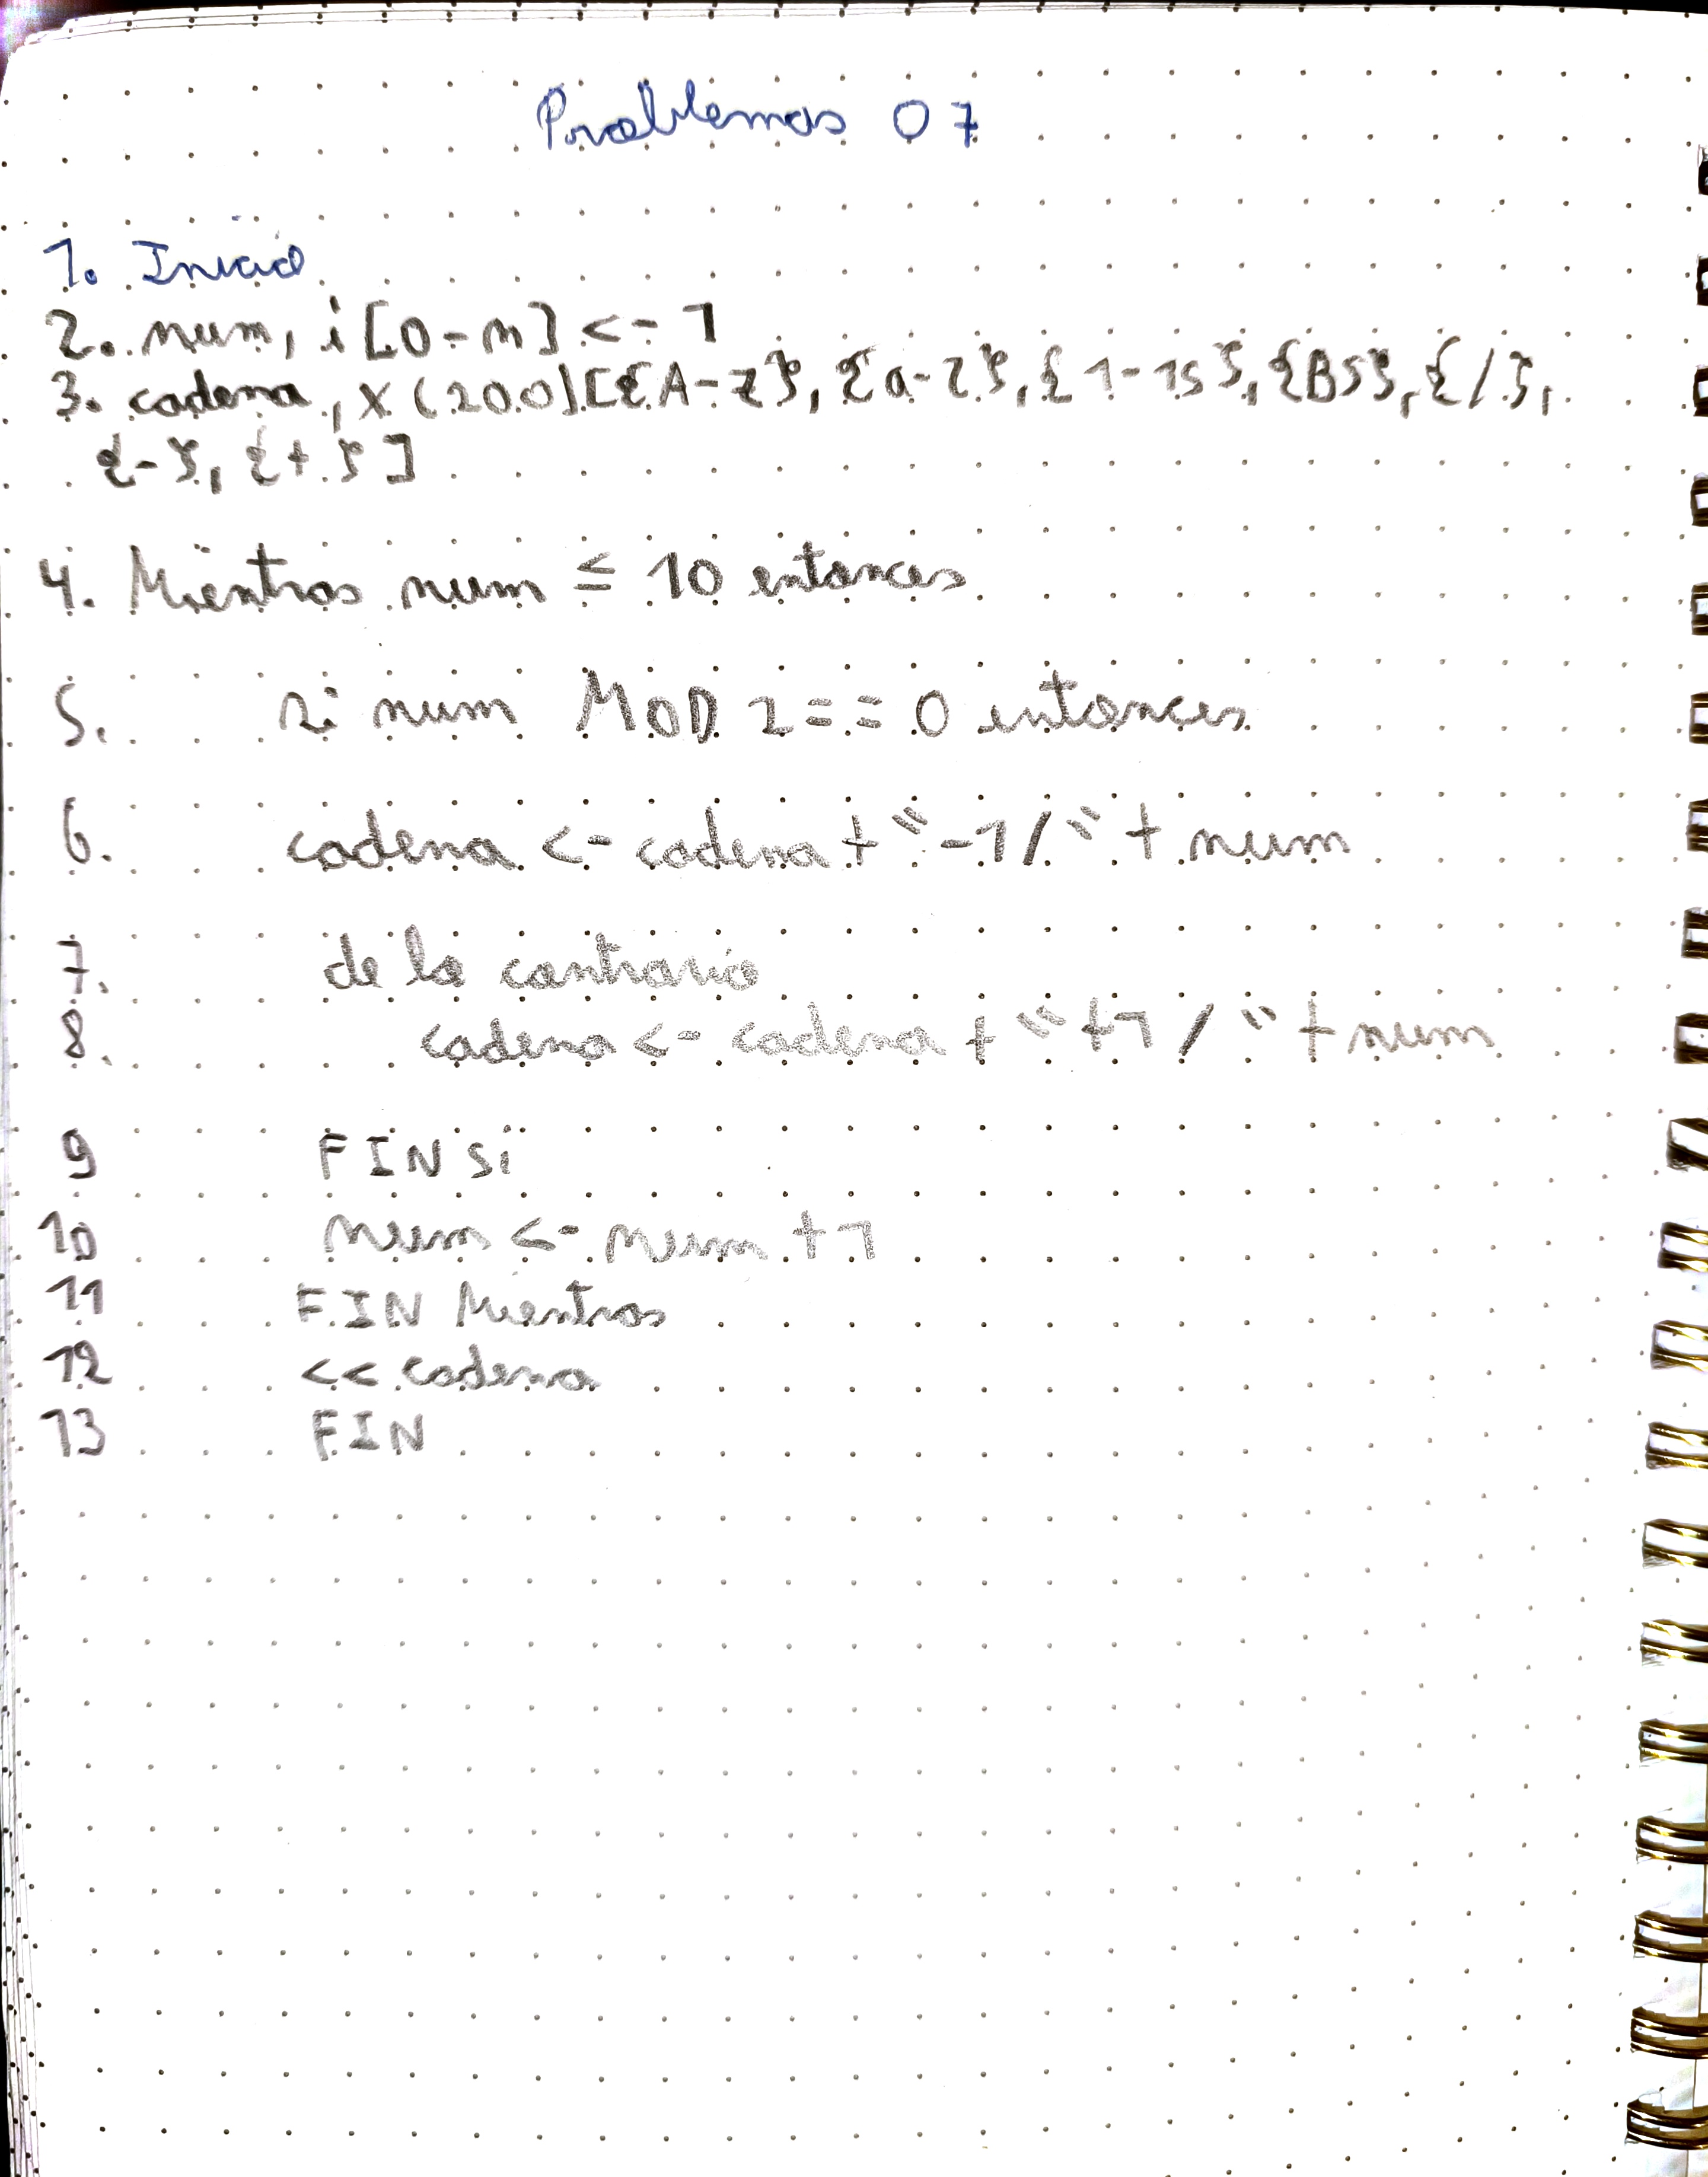 Problemas 07
1. Inicio
2. num, i [0-n] <- 1
3. cadena, X (200) [{A-Z}, {a-z}, {1-15}, {BS}, {/},
{-}, {+}]
4. Mientras num ≤ 10 entonces
5. si num MOD 2 == 0 entonces
6. cadena <- cadena + "-1/" + num
7. de lo contrario
8. cadena <- cadena + "+1/" + num
9 FIN si
10 num <- num +1
11 FIN Mientras
12 << cadena
13 FIN